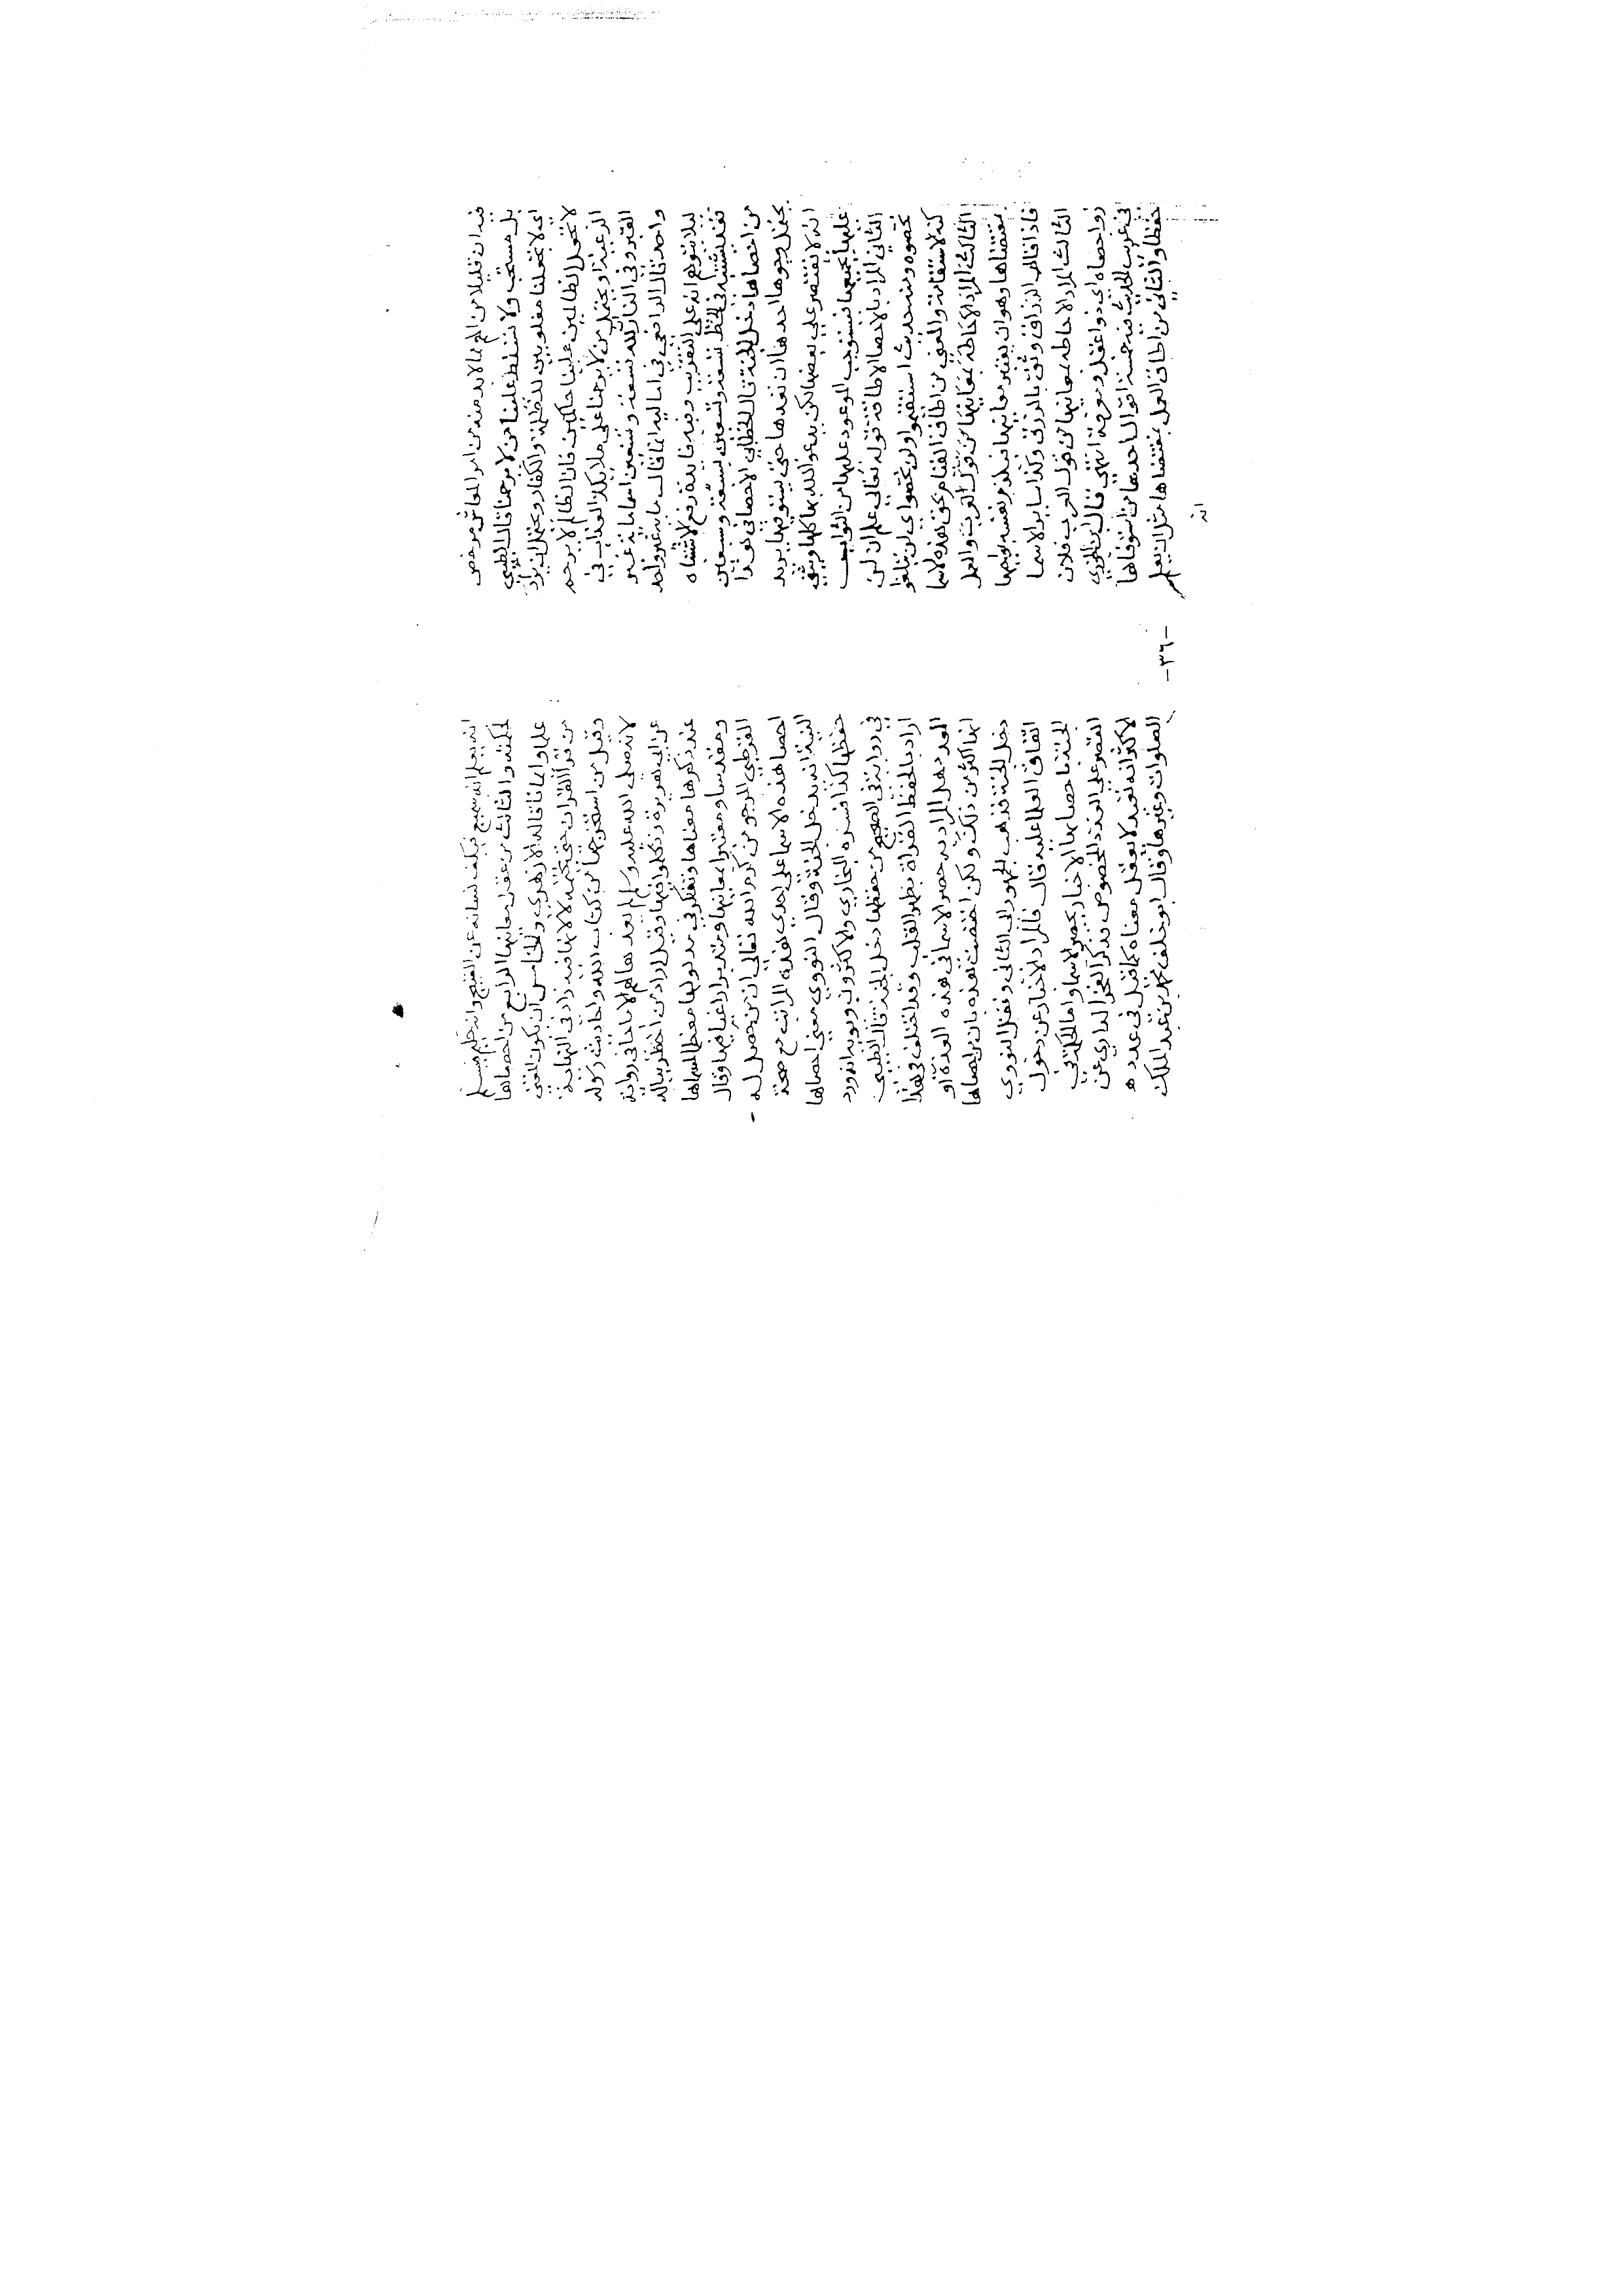 فيه ان قليلا من الهم مما لابد منه من امر المعاش مرخص
بل مستحب ولا تسلط علينا من لا يرحمنا قال الطيبي
اي لا تجعلنا مغلوبين للظلمة والكفار ويحتمل ان يراد
لا تجعل الظالمين علينا حاكمين فان الظالم لا يرحم
الرعية ويحتمل من لا يرحمنا على ملايكة العذاب في
القبر وفي النار لله تسعة وتسعين اسما ماية غير
واحد قال الرافعي في اماليه انما قال ماية غير واحد
ليلا يتوهم انه على التقريب وفيه فايدة رفع الاشتباه
فقد يشتبه في الخط تسعة وتسعين بسبعة وسبعين
من احصاها دخل الجنة قال الخطابي الاحصا في هذا
يحتمل وجوها احدها ان تعدها حتى يستوفيها يريد
انه لا يقتصر على بعضها لكن يدعو الله بها كلها ويثني
عليه بجميعها فيستوجب الموعود عليها من الثواب
الثاني المراد بالاحصا الاطاقة قوله تعالى علم ان لن
تحصوه ومنه حديث استقيموا ولن تحصوا اي لن تبلغوا
كنه الاستقامة والمعنى من اطاق القيام بحق هذه الاسما
الثالث المراد الاحاطة بمعانيها من قول العرب والعمل
بمقتضاها وهو ان يعتبر معانيها فيلزم نفسه بواجبها
فاذا قال الرزاق وثق بالرزق وكذا ساير الاسما
الثالث المراد الاحاطة بمعانيها من قول العرب فلان
ذو احصاه اي ذو عقل ومعرفة انتهى قال ابن الجوزي
في غريب الحديث فيه خمسة اقوال احدها من استوفاها
حفظا والثاني من اطاق العمل بمقتضاها مثل ان يعلم
انه
-٣٦-
انه يعلم انه سميع فيكف لسانه عن القبيح وانه حكيم فيسلم
لحكمته والثالث من عقل معانيها الرابع من احصاها
علما وايمانا قاله الازهري والخامس ان يكون المعنى
من قرا القران حتى يختمه لانها فيه زاد في النهاية
وقيل من استخرجها من كتاب الله واحاديث رسوله
لانه صلى الله عليه وسلم لم يعدها لهم الا ما جا في رواية
عن ابي هريرة وتكلموا فيها وقيل اراد من اخطر بباله
عند ذكرها معناها وتفكر في مدلولها معظما لمسماها
ومقدسا ومعتبرا بمعانيها ومتدبرا راغبا فيها وقال
القرطبي المرجو من كرم الله تعالى ان من حصل له
احصا هذه الاسما على احدى هذه المراتب مع صحة
النية ان يدخل الجنة وقال النووي معنى احصاها
حفظها كذا فسره البخاري والاكثرون ويويده انه ورد
في رواية في الصحيح من حفظها دخل الجنة قال الطيبي
اراد بالحفظ القراة بظهر القلب وقد اختلف في هذا
العدد هل المراد به حصر الاسما في هذه العدة او
انها اكثر من ذلك ولكن اختصت هذه بان من احصاها
دخل الجنة فذهب الجمهور الى الثاني ونقل النووي
اتفاق العلما عليه قال فالمراد الاخبار عن دخول
الجنة باحصايها لا الاخبار بحصر الاسما واما الحكمة في
القصر على العدد المخصوص فذكر الفخر الرازي عن
الاكثر انه تعبد لا يعقل معناه كما قيل في عدد
الصلوات وغيرها وقال ابو خلف محمد بن عبد الملك